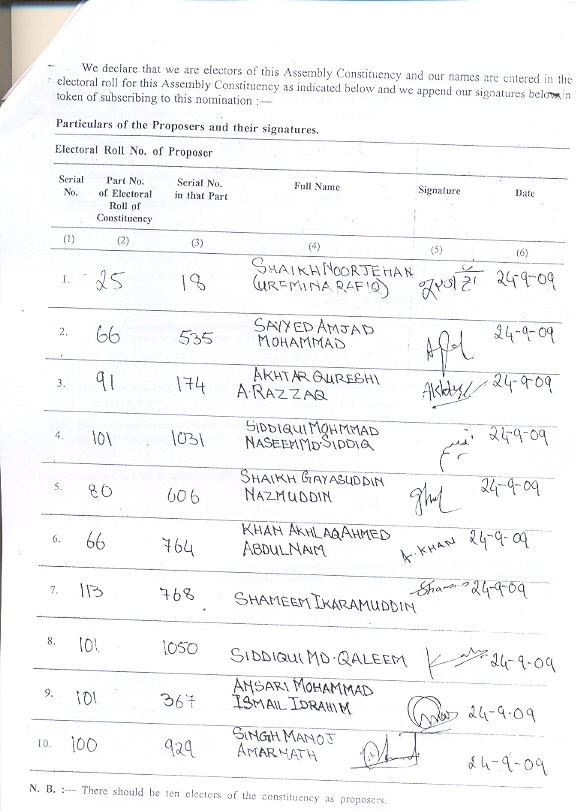 We declare that we are electors of this Assembly Constituency and our names are entered in the
electoral roll for this Assembly Constituency as indicated below and we append our signatures below in
token of subscribing to this nomination :—
Particulars of the Proposers and their signatures.
Electoral Roll No. of Proposer
Serial No. Part No. of Electoral Roll of Constituency Serial No. in that Part Full Name Signature Date
(1) (2) (3) (4) (5) (6)
1. 25 18 SHAIKH NOORJEHAN 24-9-09
(URFMINA RAFIQ)
2. 66 535 SAYYED AMJAD 24-9-09
MOHAMMAD
3. 91 174 AKHTAR QURESHI 24-9-09
A.RAZZAQ
4. 101 1031 SIDDIQUI MOHMMAD 24-9-09
NASEEM MD SIDDIQ
5. 80 606 SHAIKH GAYASUDDIN 24-9-09
NAZMUDDIN
6. 66 764 KHAN AKHLAQAHMED A. KHAN 24-9-09
ABDUL NAIM
7. 113 768 SHAMEEM IKARAMUDDIN 24-9-09
8. 101 1050 SIDDIQUI MD. QALEEM 24-9-09
9. 101 367 ANSARI MOHAMMAD 24-9-09
ISMAIL IDRAHIM
10. 100 929 SINGH MANOJ 24-9-09
AMARNATH
N. B. :— There should be ten electors of the constituency as proposers.